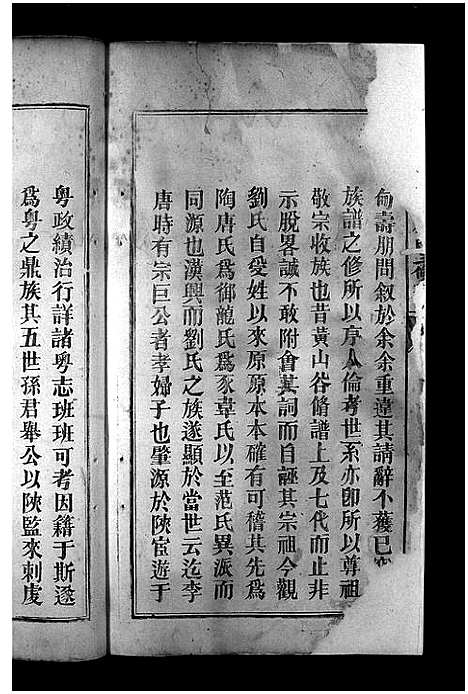 訇壽朋問叙於余余重違其請辭不獲已
族譜之修所以序人倫考世系亦卽所以尊祖
敬宗收族也昔黃山谷脩譜上及七代而止非
示脫畧誠不敢附會其詞而自誣其宗祖今觀
劉氏自受姓以來原原本本確有可稽其先爲
陶唐氏爲御龍氏爲豕韋氏以至范氏異派而
同源也漢興而劉氏之族遂顯於當世云迄李
唐時有宗巨公者孝婦子也肇源於陝宦遊于
粤政績治行詳諸粤志班班可考因籍于斯遂
爲粤之鼎族其五世孫君舉公以陝監來刺虔